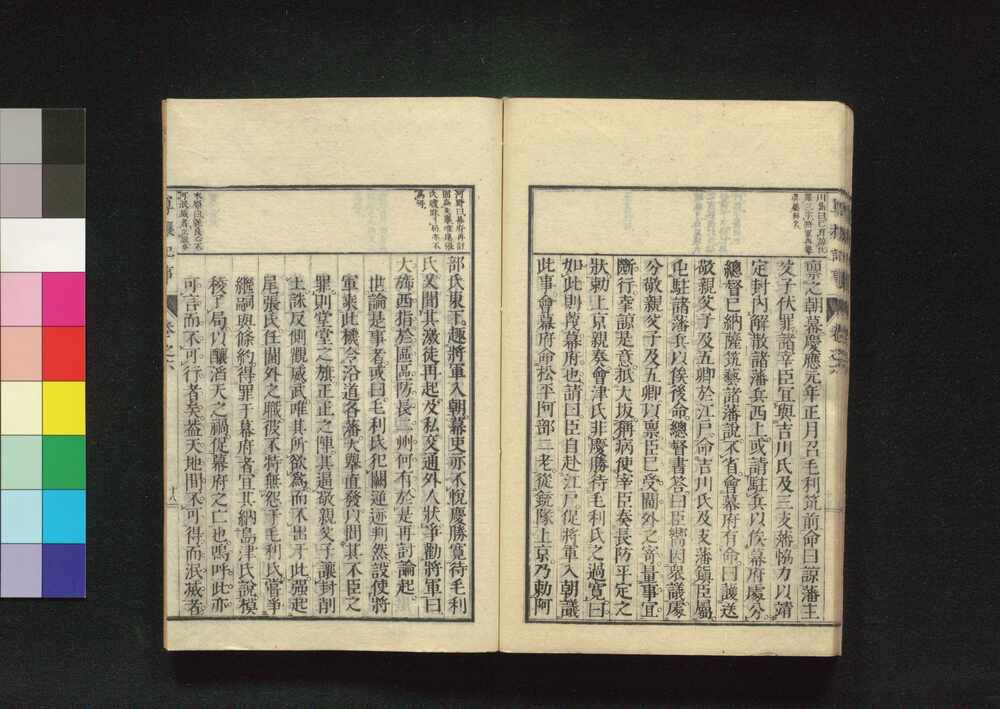 稟之朝幕慶應元年正月召毛利筑前命曰諒藩主
父子伏罪諸宰臣宜與吉川氏及三支藩恊力以靖
定封內解散諸藩兵西上或請駐兵以俟幕府處分
總督已納薩筑藝諸藩說不省會幕府有命曰護送
敬親父子及五卿於江戶命吉川氏及支藩鎮臣屬
屯駐諸藩兵以俟後命總督書答曰臣嚮因衆議處
分敬親父子及五卿以稟臣已受閫外之寄量事宜
斷行幸諒是意抵大坂稱病使宰臣奏長防平定之
狀勅上京親奏會津氏非慶勝待毛利氏之過寬曰
如此則蔑幕府也請曰臣自赴江戶促將軍入朝議
此事會幕府命松平阿部二老從銃隊上京乃勅阿
部氏東下趣將軍入朝幕吏亦不悅慶勝寬待毛利
氏又聞其激徒再起及私交通外人狀爭勸將軍曰
大旆西指於區區防長二州何有於是再討論起
世論是事者或曰毛利氏犯闕逆迹判然設使將
軍乘此機令沿道各藩大擧直發以問其不臣之
罪則堂堂之旗正正之陣其逼敬親父子讓封削
土誅反側觀威武唯其所欲爲而不出于此强起
尾張氏任閫外之職彼不特無怨于毛利氏嘗爭
繼嗣與條約得罪于幕府者宜其納島津氏說模
稜了局以釀滔天之禍促幕府之亡也嗚呼此亦
可言而不可行者矣蓋天地間不可得而泯滅者
尊攘紀事
卷之六
十八